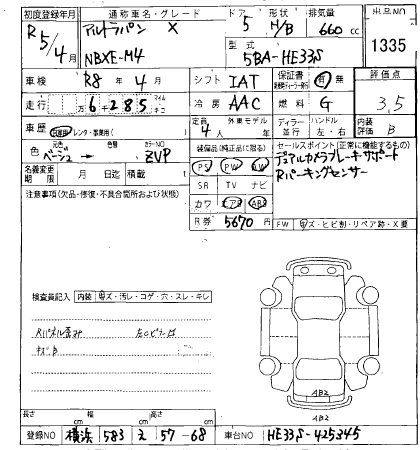 初度登録年月 通称車名・グレード ドア 形状 排気量 出品NO
R5/4月 アルトラパン X 5 H/B 660 cc 1335
NBXE-M4 型式 5BA-HE33S
車検 R8 年 4 月 シフト IAT 保証書 有 無 評価点
走行 万 6 千 285 マイル キロ 冷房 AAC 燃料 G 3.5
車歴 自家用・レンタ・事業用( ) 定員 4人 外車モデル 年 ディーラー 並行 ハンドル 左・右 内装評価 B
色 元色 ベージュ → 色替 カラーNO ZVP 装備品(純正品に限る) セールスポイント(正常に機能するもの)
名義変更期限 月 日迄 積載 t PS PW AW デュアルカメラブレーキサポート
注意事項(欠品・修復・不具合箇所および状態) SR TV ナビ Rパーキングセンサー
カワ エアB ABS
R券 5670 円 FW キズ・ヒビ割・リペア跡・X要
検査員記入 内装 キズ・汚レ・コゲ・穴・スレ・キレ
Rパネル歪み
キズ
AB2
AB2
長さ cm 幅 cm 高さ cm
登録NO 横浜 583 え 57-68 車台NO HE33S-425345